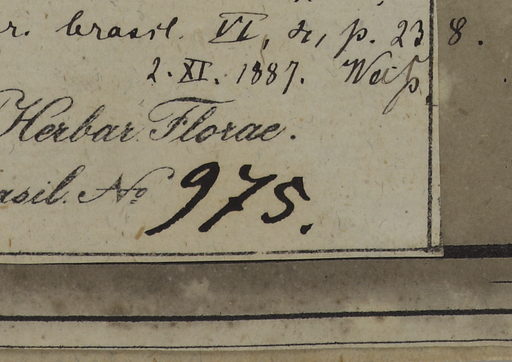 r. brasil. VI, 4, p. 238.
2. XI. 1887. Weiß.
Herbar. Florae.
asil. No 975.